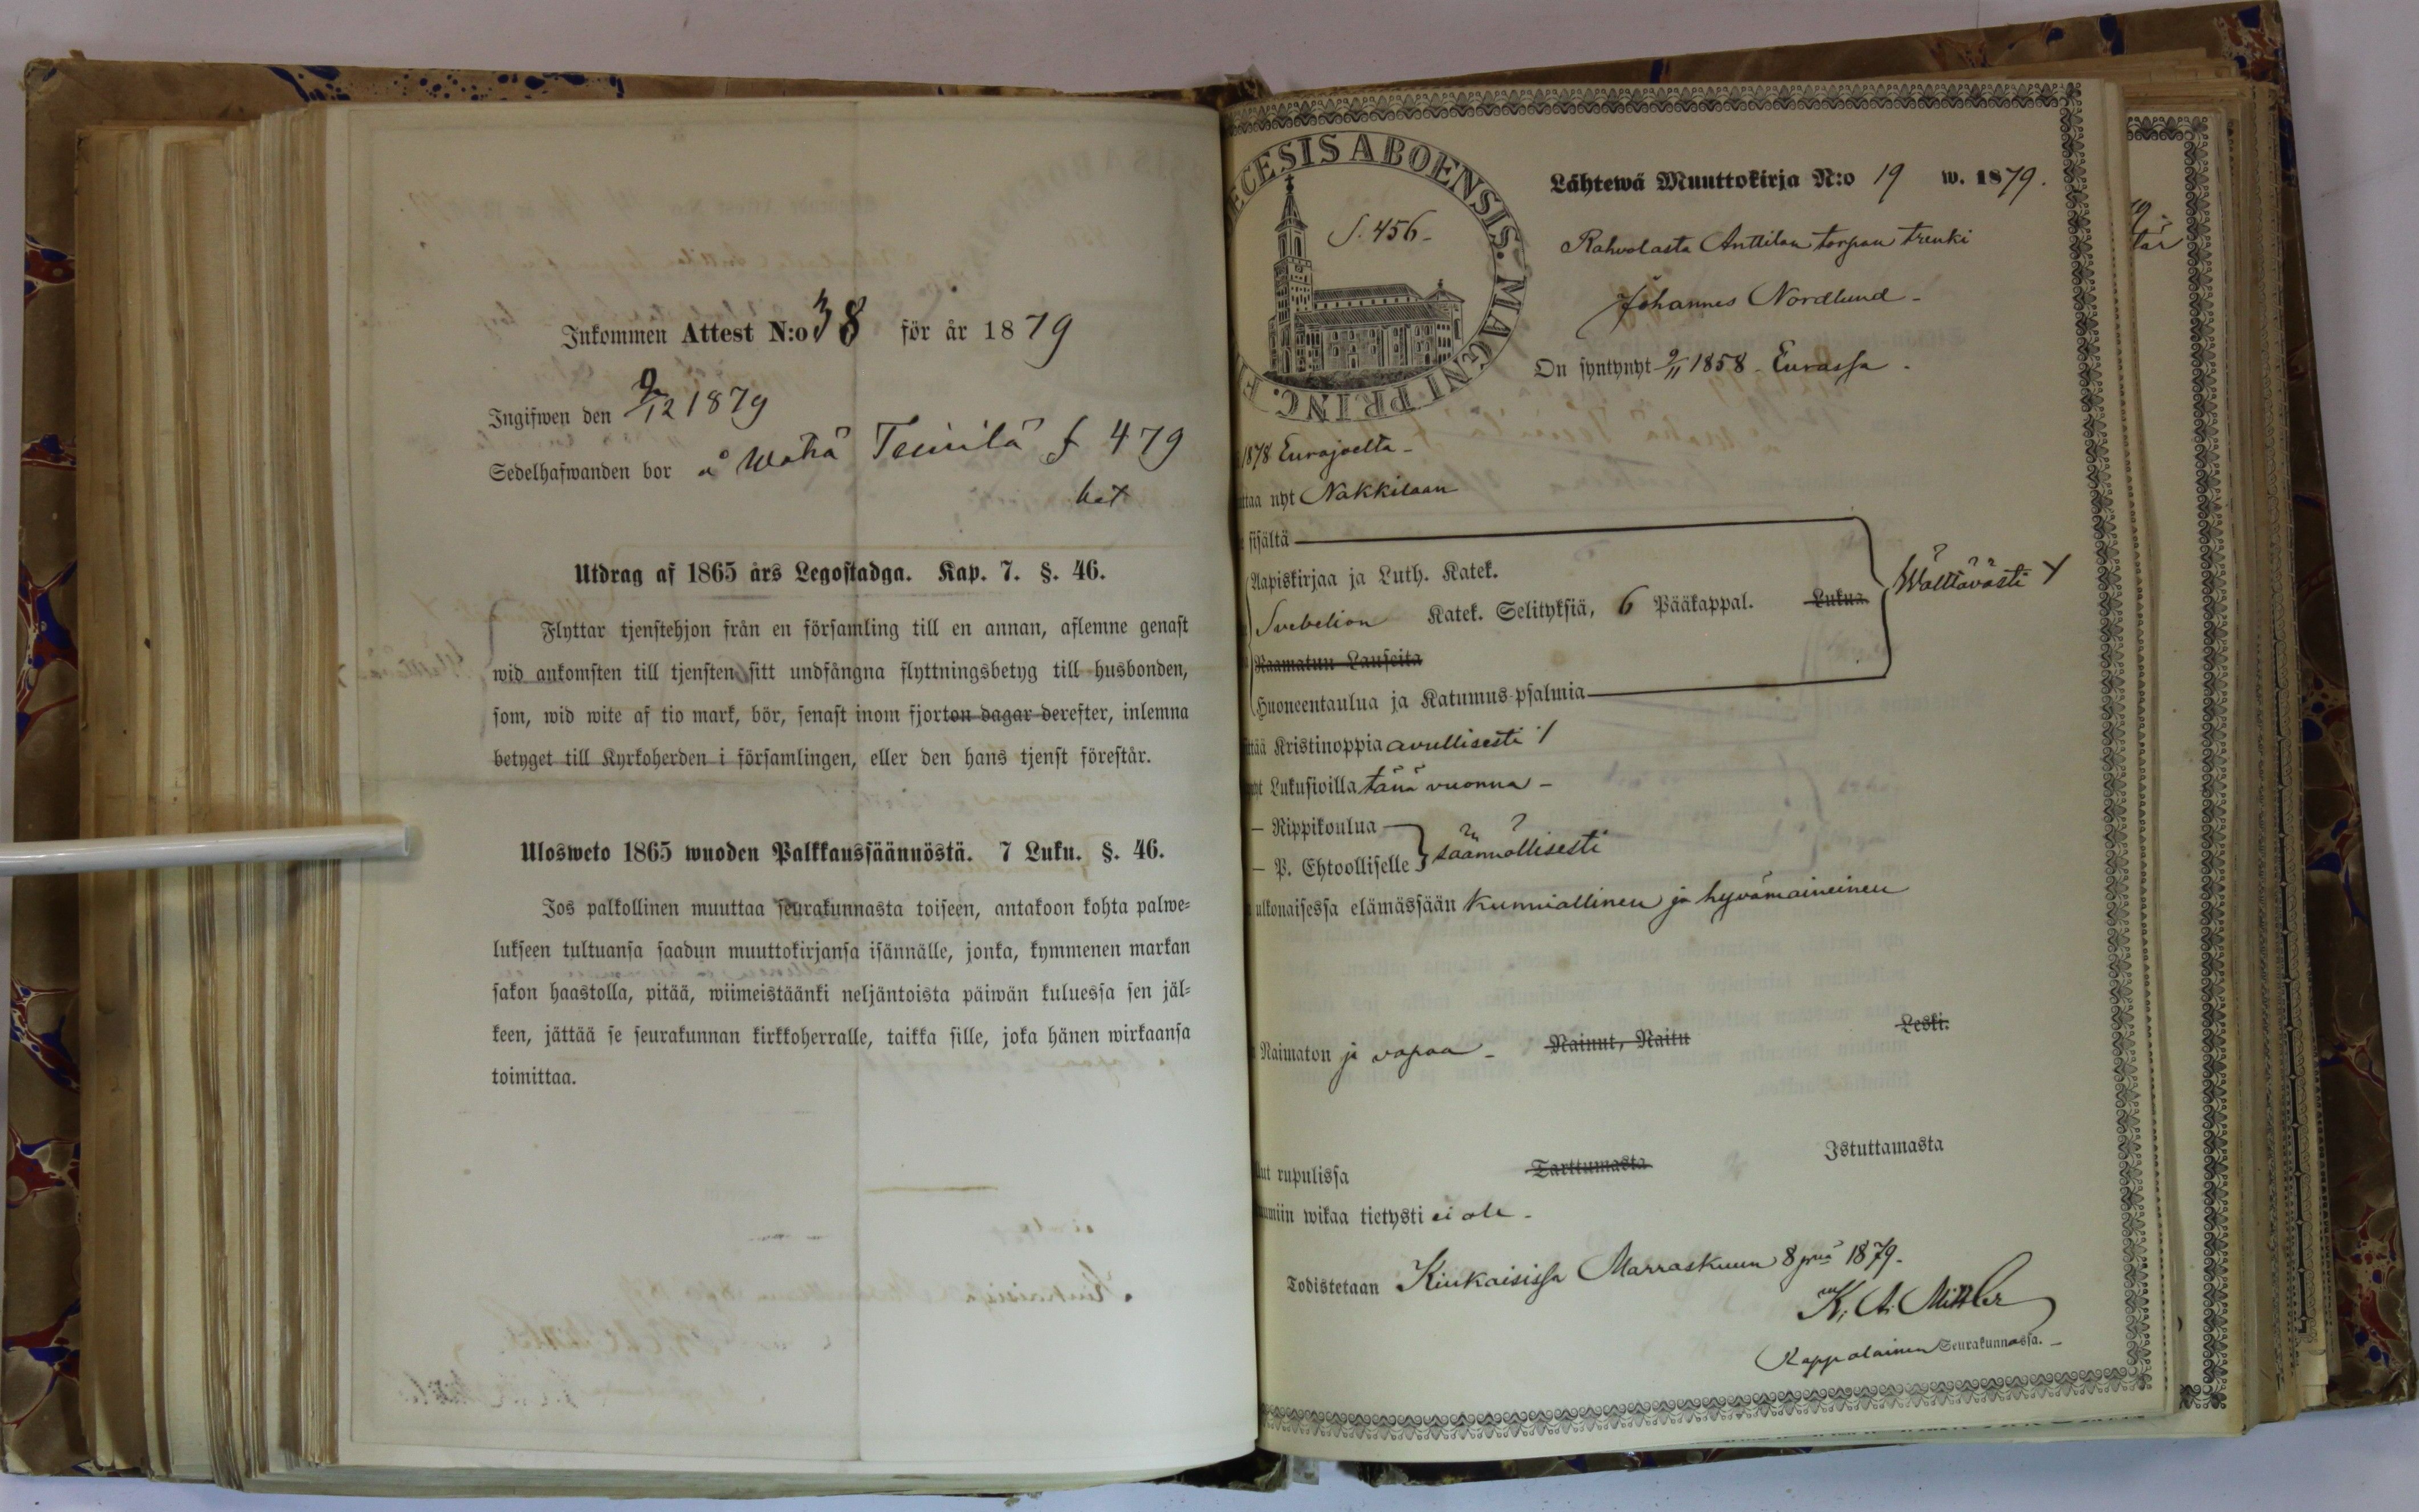 Inkommen Attest N:o 38 för år 1879
Ingifwen den 9/12 1879
Sedelhafwanden bor å Wähä Teinilä f 479
Utdrag af 1865 års Legostadga. Kap. 7. §. 46.
Flyttar tjenstehjon från en församling till en annan, aflemne genast
wid ankomsten till tjensten sitt undfångna flyttningsbetyg till husbonden,
som, wid wite af tio mark, bör, senast inom fjorton dagar derefter, inlemna
betyget till Kyrkoherden i församlingen, eller den hans tjenst förestår.
Ulosweto 1865 wuoden Palkkaussäännöstä. 7 Luku. §. 46.
Jos palkollinen muuttaa seurakunnasta toiseen, antakoon kohta palwe=
lukseen tultuansa saadun muuttokirjansa isännälle, jonka, kymmenen markan
sakon haastolla, pitää, wiimeistäänki neljäntoista päiwän kuluessa sen jäl=
keen, jättää se seurakunnan kirkkoherralle, taikka sille, joka hänen wirkaansa
toimittaa.
ECESIS ABOENSIS. MAGNI PRINC. F
S. 456-
Lähtewä Muuttokirja N:o 19 w. 1879.
Rahvolasta Anttilan torpan trenki
Johannes Nordlund -
On syntynyt 9/11 1858 - Eurassa .
1878 Eurajoelta -
ttaa nyt Nakkilaan
sisältä
Aapiskirjaa ja Luth. Katek.
Svebelion Katek. Selityksiä, 6 Pääkappal. Lukua
Wälttävästi
Raamatun Lauseita
Huoneentaulua ja Katumus-psalmia
tää Kristinoppia avullisesti
yt Lukusioilla tänä vuonna -
— Rippikoulua
— P. Ehtoolliselle säännöllisesti
ulkonaisessa elämässään Kunniallinen ja hyvämaineinen
Naimaton ja vapaa - Nainut, Naitu Leski.
ut rupulissa Tarttumasta Istuttamasta
umiin wikaa tietysti ei ole -
Todistetaan Kiukaisissa Marraskuun 8 pnä 1879.
K. A. Mittler
Kappalainen Seurakunnassa. -